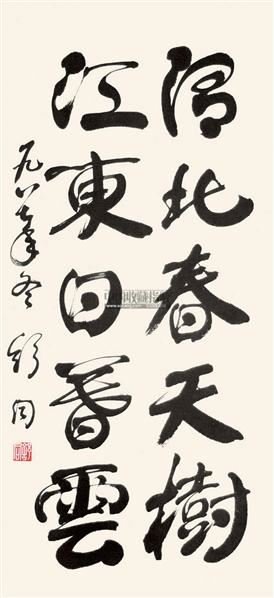 渭北春天樹
江東日暮雲
一九八年冬 舒同